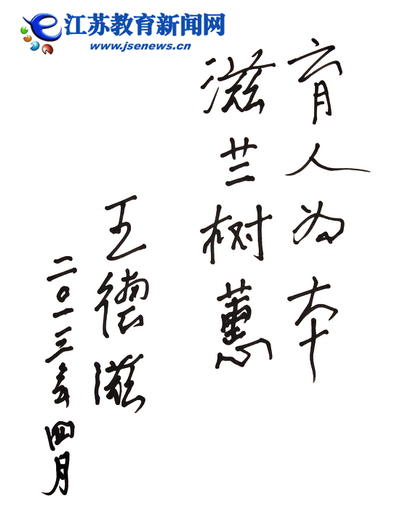 江苏教育新闻网
www.jsenews.cn
育人为本
滋兰树蕙
王德滋
二〇一三年四月